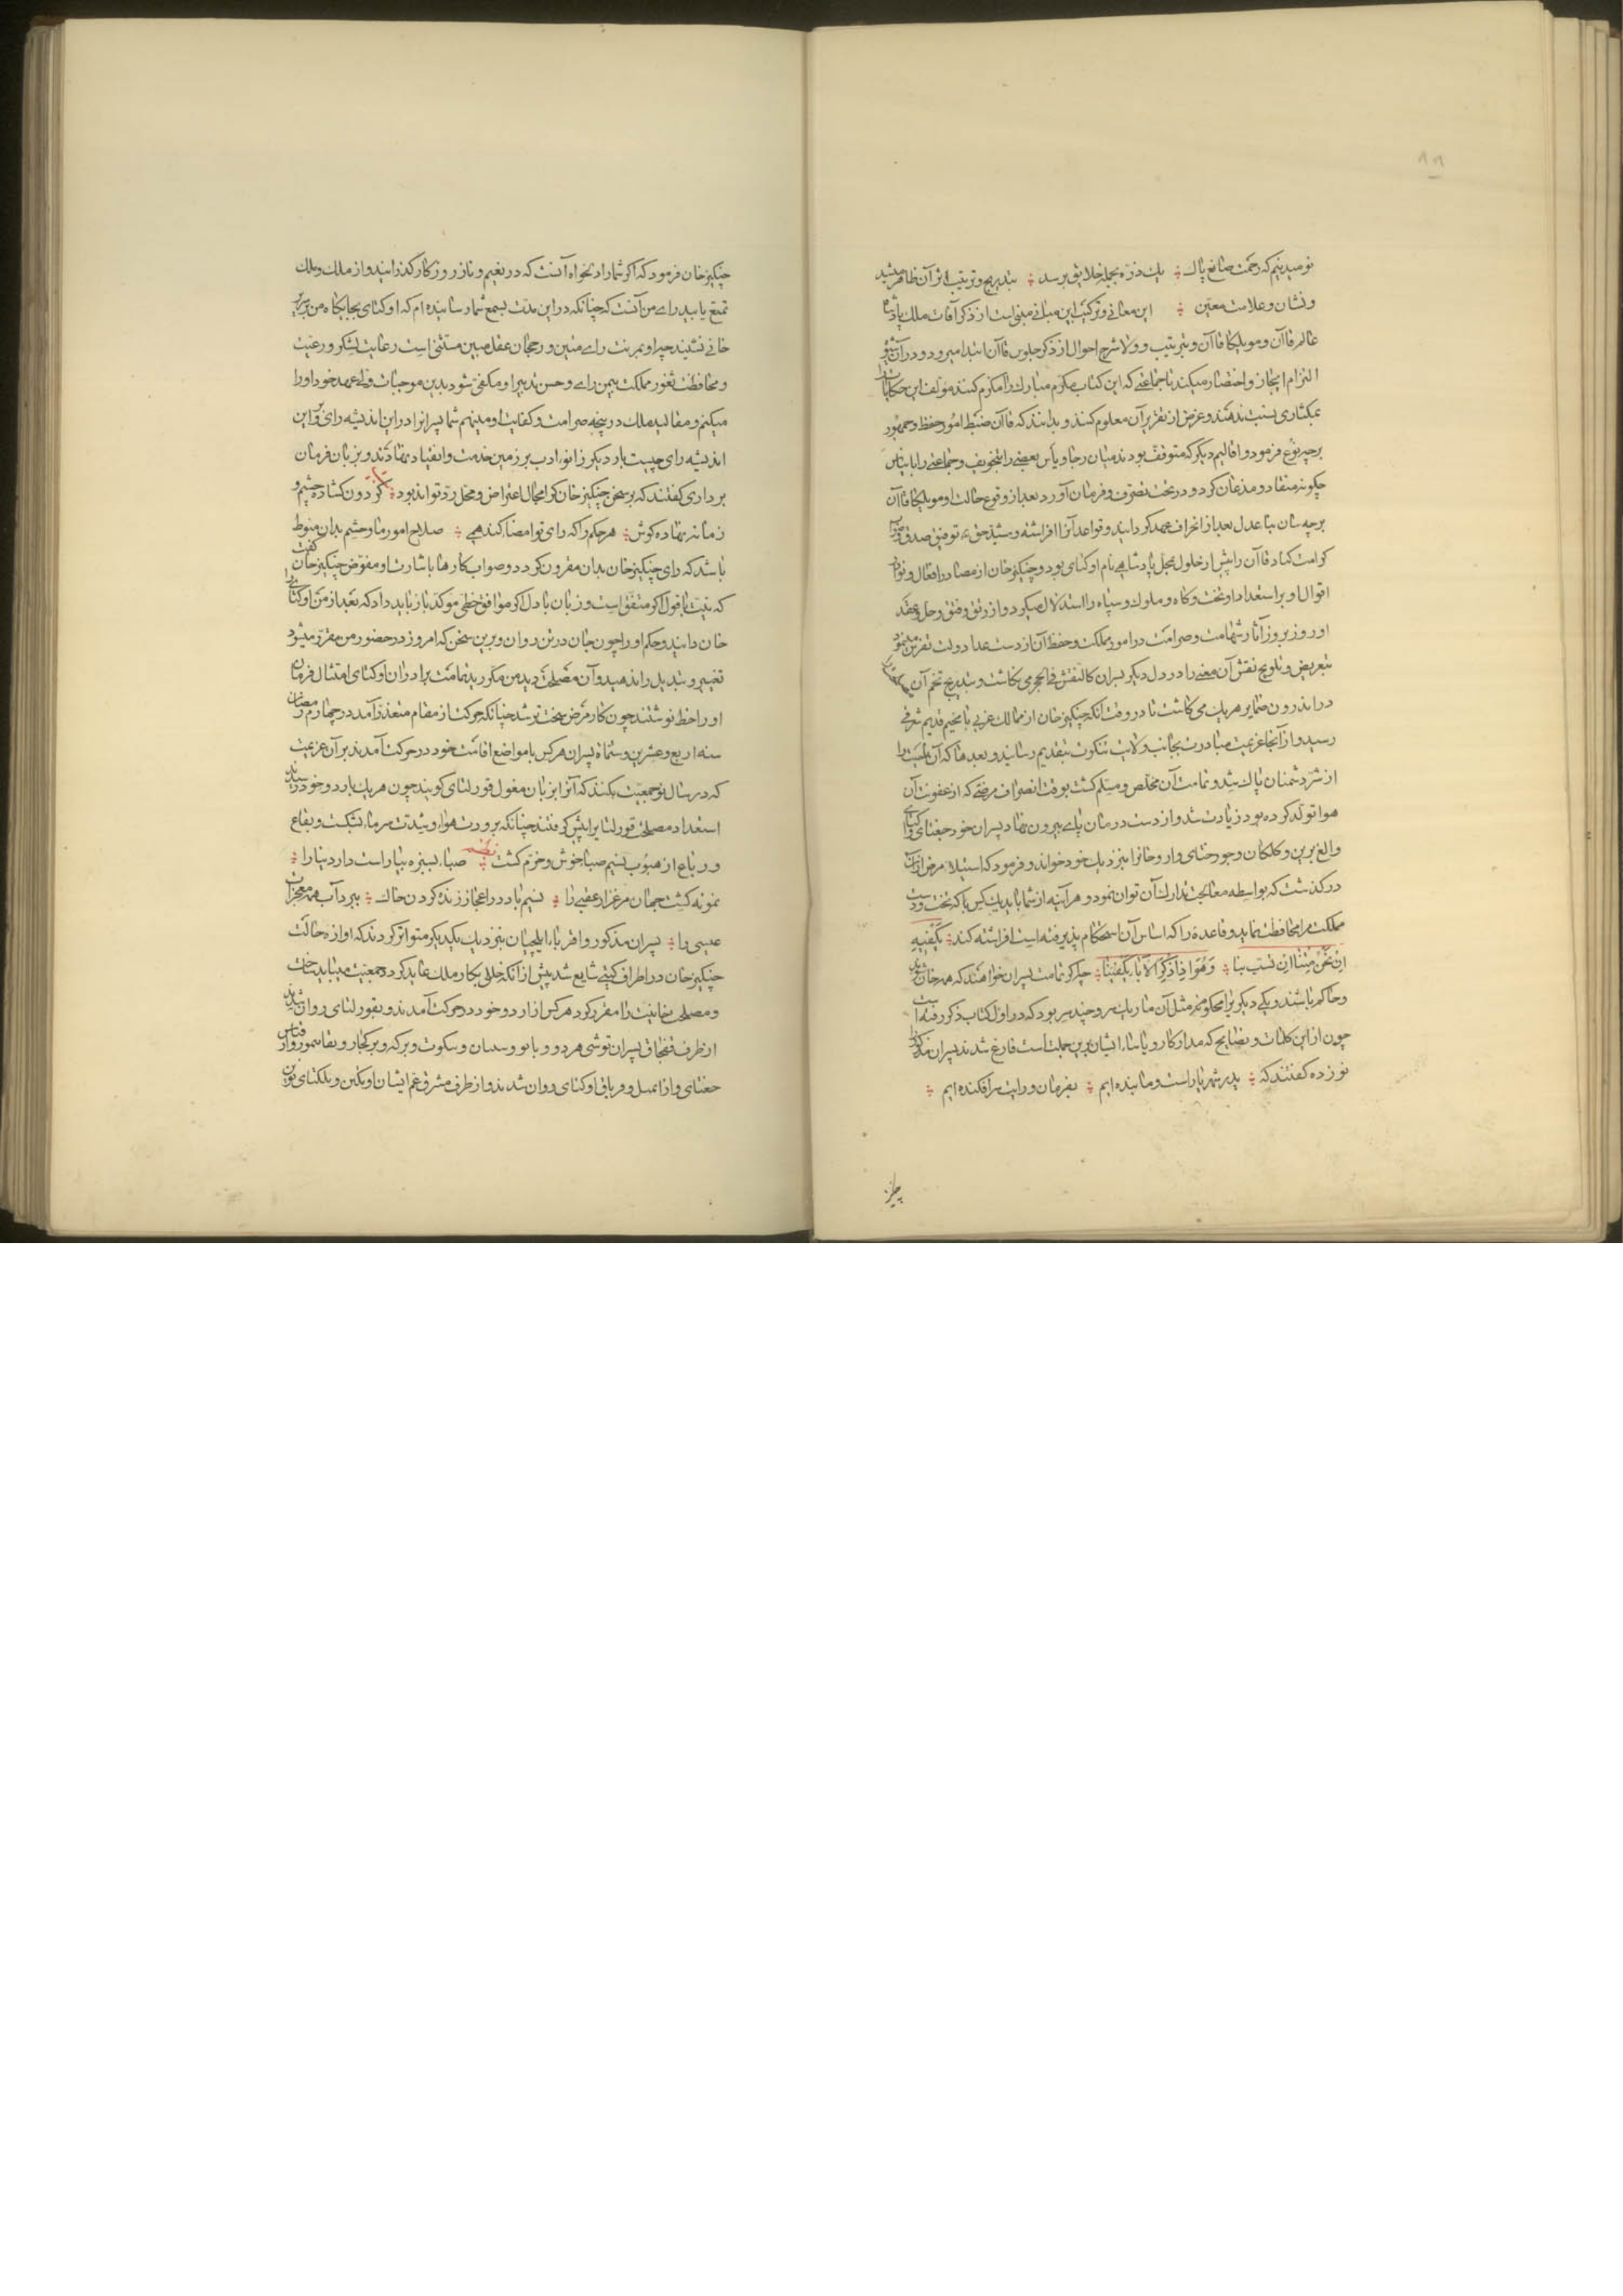 نومید نیم که رحمت صانع پاک یک ذره بجمله خلایق برسد بتدریج و ترتیب اثر آن ظاهر میشد
و نشان و علامت معین این معانی و ترکیب این مبانی مبنی است از ذکر آفات ملک پادشاه
عالم قاآن و مونککا قاآن و بترتیب و ولا شرح احوال از ذکر جلوس قاآن ابتدا میرود و در آن شیوه
التزام ایجاز و اختصار میکند تا جماعتی که این کتاب مکرم مبارک را مکرم کنند مولف این حکایات را
بمکثاری نسبت ندهند و غرض از تقریر آن معلوم کنند و بدانند که قاآن ضبط امور و حفظ جمهور
برچه نوع فرمود و اقالیم دیگر که متوقف بودند میان رجا و یاس بعضی را بتخویف و جماعتی را باستیناس
چگونه منقاد و مذعان کرد و در تحت تصرف و فرمان آورد و بعد از وقوع حالت او مونککا قاآن
برچه سان بنا عدل بعد از انحراف ممهد گردانید و قواعد آنرا افراشته و مشید حق توفیق صدق و صواب
کرامت کناد قاآن را پیش از حلول محل پادشاهی نام اوکتای بود و چنگیز خان از مصادر افعال و نوادر
اقوال او بر استعداد او تخت و گاه و ملوک و سپاه را استدلال میکرد و از رتق و فتق و حل و عقد
او روز بروز آثار شهامت و صرامت در امور مملکت و حفظ آن از دست عدا دولت تفرس مینمود
بتعریض و تلویح نقش آن معنی را در دل دیگر پسران کالنقش فی الحجر می نگاشت و بتدریج تخم آن
در اندرون ضمایر هر یک می کاشت تا در وقت آنکه چنگیز خان از ممالک غربی با مخیم قدیم شرقی
رسید و از آنجا عزیمت مبادرت بجانب ولایت تنکوت بتقدیم رسانید و بعد ما که آن ناحیت را
از شر دشمنان پاک شد و تمامت آن مخلص و مسلم گشت بوقت انصراف مرضی که از عفونت آن
هوا تولد کرده بود زیادت شد و از دست درمان پای بیرون نهاد پسران خود جغتای و اوکتای
و الغ نوین و کلکان و جورجتای و اورجان را بنزدیک خود خواند و فرمود که استیلاء مرض از آن
در گذشت که بواسطه معالجت تدارک آن توان نمود و هر آینه از شما باید یک کس باید که تخت و دست
مملکت مرا محافظت نماید و قاعدهٔ را که اساس آن استحکام پذیرفته است افراشته کند یکفیه
ان نحن متنا ان نسب بنا وهو اذا ذکر الآباء یکفینا چه اگر تمامت پسران خواهند که همه خان شوند
و حاکم باشند و یکی دیگری را محکوم نه مثل آن مار یک سر و چند سر بود که در اول کتاب ذکر رفته است
چون ازین کلمات و نصایح که مدار کار و یاساء ایشان برین جملت است فارغ شد پسران مذکور
نو زده گفتند که پدر شهریارست و ما بنده ایم بفرمان و رایت سرافکنده ایم
چنگیز
چنگیز خان فرمود که اگر شما را دلخواه آنست که در نعیم و ناز روزگار گذرانید و از ملک و ملک
تمتع یابید رای من آنست که چنانکه درین مدت بسمع شما رسانیده ام که اوکتای بجایگاه من بر سریر
خانی نشیند چه او بمزیت رای متین و رجحان عقل مبین مستثنی است رعایت لشکر و رعیت
و محافظت ثغور مملکت بیمن رای و حسن تدبیر او مکفی شود بدین موجبات ولی عهد خود او را
میکنم و مقالید ملک در پنجه صرامت و کفایت او مینهم شما پسرانرا درین اندیشه رای و برین
اندیشه رای چیست بار دیگر زانو ادب بر زمین خدمت و انقیاد نهادند و بزبان فرمان
برداری گفتند که بر سخن چنگیز خان کرا مجال اعتراض و محل رد تواند بود گردون گشاده چشم و
زمانه نهاده گوش هر حکم را که رای تو امضا کند همی صلاح امور ما و حشم بدان منوط
باشد که رای چنگیز خان بدان مقرون گردد و صواب کارها باشارت او مفوض چنگیز خان گفت
که نیت با قول اگر متفق است و زبان با دل اگر موافق خطی موکد باز باید داد که بعد از من اوکتای را
خان دانید و حکم او را چون جان در تن روان و برین سخن که امروز در حضور من مقرر میشود
تغییر و تبدیل را ندهید و آن مصلحت دید من مگردید تمامت برادران اوکتای امتثال فرمان
او را خط نوشتند چون کار مرض سخت تر شد چنانکه حرکت از مقام متعذر آمد در چهارم رمضان
سنه اربع و عشرین و ستمایه پسران هر کس با مواضع اقامت خود در حرکت آمدند بر آن عزیمت
که در سال نو جمعیت بکنند که آنرا بزبان مغول قوریلتای گویند چون هر یک باردو خود رسیدند
استعداد مصلحت قوریلتا را پیش گرفتند چنانکه برودت هوا و شدت سرما بشکست و بقاع
و رباع از هبوب نسیم صبا خوش و خرم گشت نظم صبا بسبزه بیاراست دار دنیا را
نمونه گشت جهان مرغزار عقبی را نسیم باد در اعجاز زنده کردن خاک ببرد آب همه معجزات
عیسی را پسران مذکور و اقربا ایلچیان بنزدیک یکدیگر متواتر کردند که آوازه حالت
چنگیز خان در اطراف گیتی شایع شد پیش از آنکه خللی بکار ملک عاید گردد جمعیت میباید ساخت
و مصلحت خانیت را مقرر کرد هر کس از اردو خود در حرکت آمدند و بقوریلتای روان شدند
از طرف قفجاق پسران توشی هردو و باتو و سیبان و سکوت و برکه و برکجار و بقاتیمور و از قناس
جغتای و از ایمیل و قوناق اوکتای روان شدند و از طرف مشرق عم ایشان اوتکین و بلکتای نوین